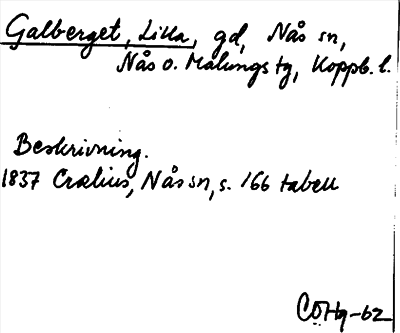 Galberget, Lilla, gd, Nås sn,
Nås o. Malungs tg, Koppb. l.
Beskrivning.
1837 Crælius, Nås sn, s. 166 tabell
CÖHg-62